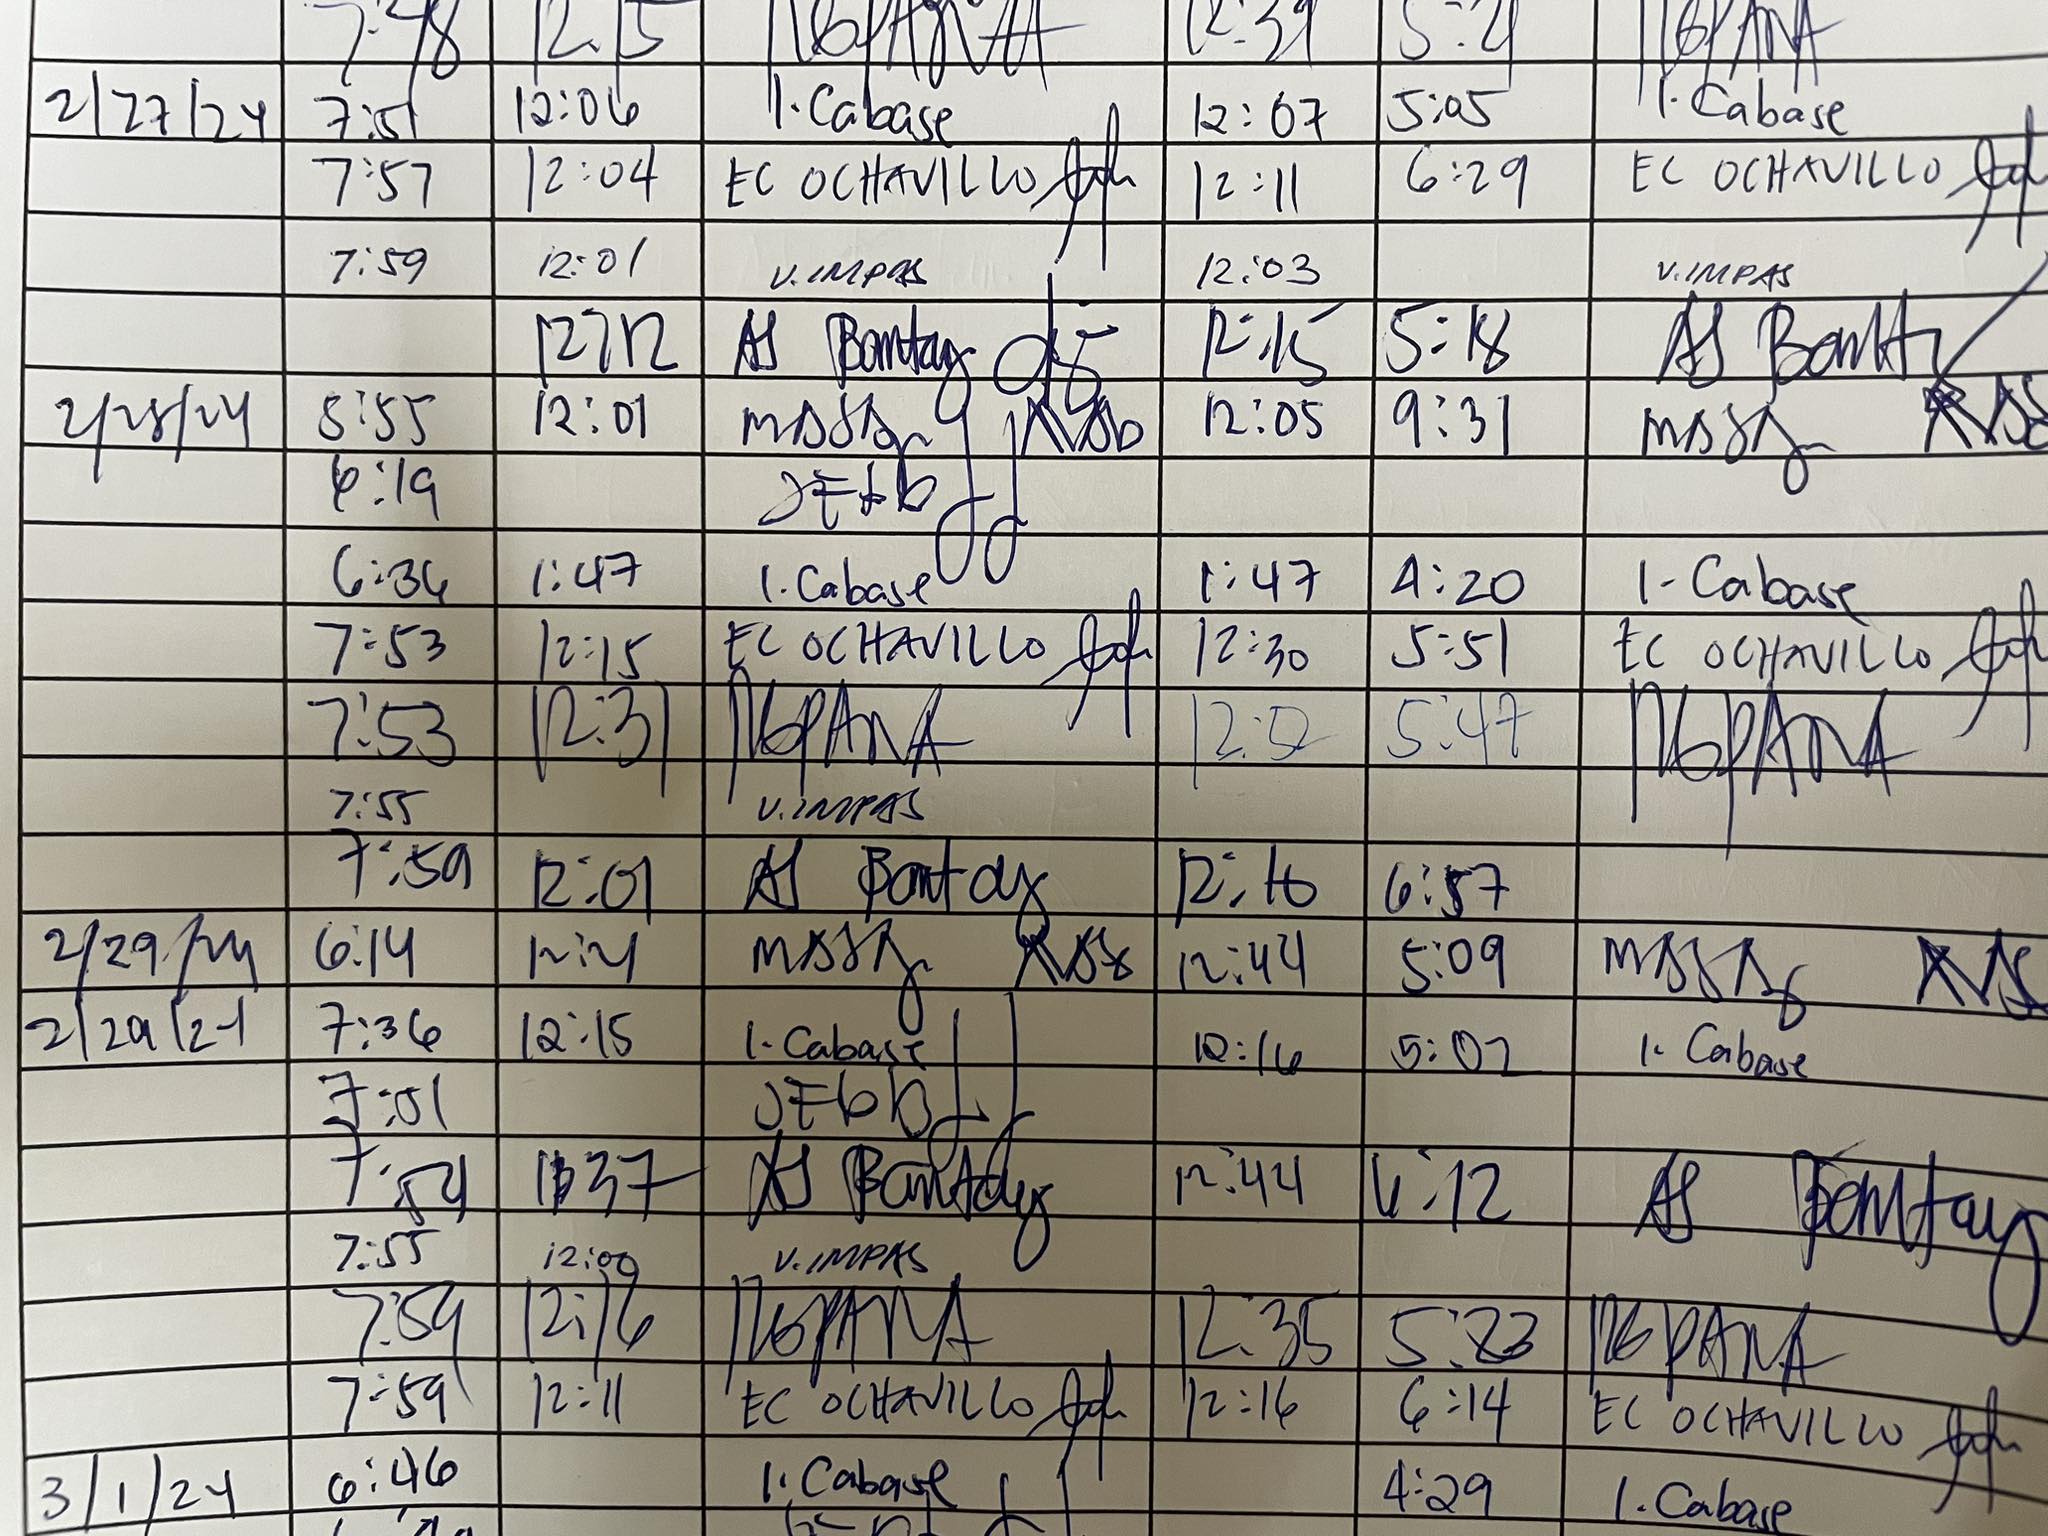 7:48 12:15 NGPANA 12:39 5:21 NGPANA
2/27/24 7:51 12:06 I. Cabase 12:07 5:05 I. Cabase
7:57 12:04 EC OCHAVILLO 12:11 6:29 EC OCHAVILLO
7:59 12:01 V. IMPAS 12:03 V. IMPAS
12:12 AS Bontay 12:15 5:18 AS
2/28/24 5:55 12:01 12:05 9:31
6:19
6:36 1:47 I. Cabase 1:47 4:20 I- Cabase
7:53 12:15 EC OCHAVILLO 12:30 5:51 EC OCHAVILLO
7:53 12:31 NGPANA 5:47 NGPANA
7:55 V. IMPAS
7:59 12:01 AS Bontay 12:16 6:57
2/29/24 6:14 12:44 5:09
2/29/24 7:36 12:15 I. Cabase 12:16 5:02 I. Cabase
7:51
7:54 AS Bontay 12:44 6:12 AS Bontay
7:55 12:00 V. IMPAS
7:59 12:16 NGPANA 12:35 5:23 NGPANA
7:59 12:11 EC OCHAVILLO 12:16 6:14 EC OCHAVILLO
3/1/24 6:46 I. Cabase 4:29 I. Cabase